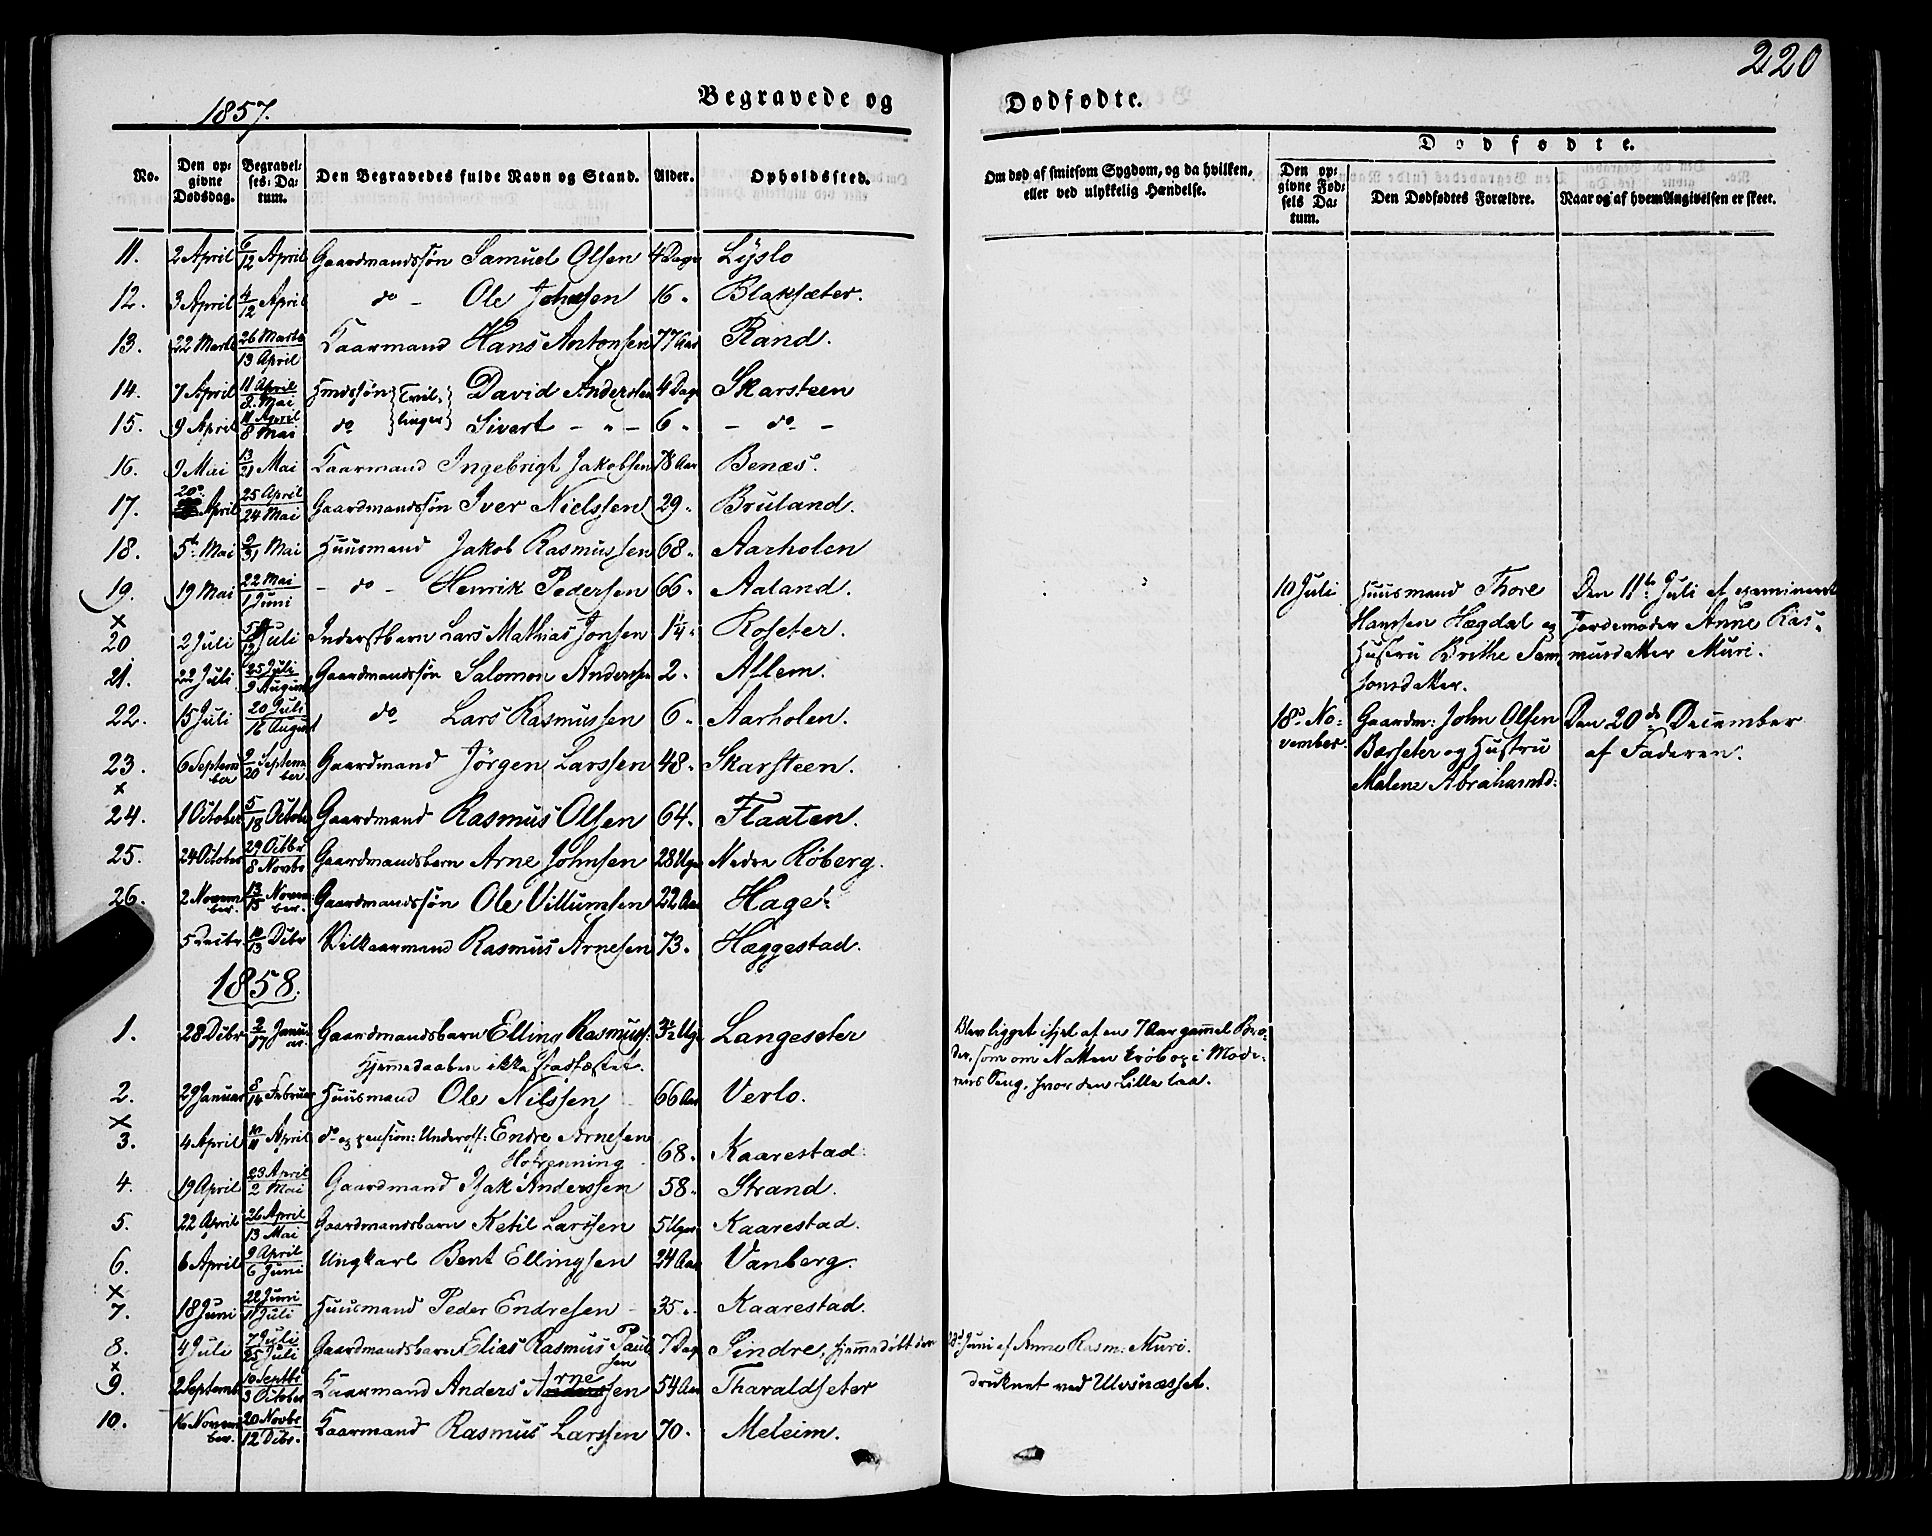 220
1857.
Begravede og Dødfødte.
No.
Den opgivne Dødsdag.
Begravelses-Datum.
Den Begravedes fulde Navn og Stand.
Alder.
Opholdssted.
Om død af smitsom Sygdom, og da hvilken, eller ved ulykkelig Hændelse.
Dødfødte.
Den opgivne Fødsels Datum.
Den Dødfødtes Forældre.
Naar og af hvem Angivelsen er skeet.
11. 2 April 6/12 April Gaardmandssøn Samuel Olsen 4 Dage Lyslo
12. 3 April 4/12 April do - Ole Johnsen 16 " Blaksæter.
13. 22 Marts 26 Marts/13 April Kaarmand Hans Antonsen 77 Aar Rand.
14. 7 April 11 April/8 Mai Hmdssøn {Tvillinger} David Anderssen 4 Dage Skarsteen
15. 9 April 11 April/8 Mai do Sivert - " - 6 " - do -
16. 9 Mai 13/21 Mai Kaarmand Ingebrigt Jakobsen 78 Aar Benæs.
17. 20de April 25 April/24 Mai Gaardmandssøn Iver Nielssen 29 " Bruland.
18. 5te Mai 9/31 Mai Huusmand Jakob Rasmussen 68 " Aarholen
19. 19 Mai 22 Mai/1 Juni - do - Henrik Pedersen 66 " Aaland.
x
20 2 Juli Juli Inderstbarn Lars Mathias Jonsen 1 1/4 " Roseter.
21. 22 Juli 25 Juli/9 August Gaardmandssøn Salomon Anderssen 2 " Aflem.
22. 15 Juli 20 Juli/16 August do Lars Rasmussen 6 " Aarholen.
23. 6 September 9/20 September Gaardmand Jørgen Larssen 48 " Skarsteen.
x
24. 1 October 5/18 October Gaardmand Rasmus Olsen 64 " Flaaten.
25. 24 October 29 Octbr/8 Novbr Gaardmandsbarn Arne Johnsen 28 Uger Nedre Røberg.
26. 2 November 13/15 November. Gaardmandssøn Ole Villumsen 22 Aar Hage
5 Decbr 10/13 Dcbr Vilkaarmand Rasmus Arnesen 73 " Hæggestad.
10 Juli
Huusmand Thore
Hansen Hægdal og
Hustru Brithe Sam
sonsdatter.
Den 11te Juli af examineret
Jordemoder Anne Ras-
musdatter Muri.
18de No-
vember
Gaardm: John Olsen
Bærseter og Hustru
Malene Abrahamsd:
Den 20de December
af Faderen.
1858.
1. 28 Dcbr 2/17 Januar Gaardmandsbarn Elling Rasmuss: 3 1/2 Uge Langeseter
Hjemmedaaben ikke stadfæstet.
Blev ligget ihjel af en 7 Aar gammel Bro-
der, som om Natten krøb op i Mode-
rens Seng, hvor den Lille laa.
2. 29 Januar 8/14 Februar Huusmand Ole Nilssen 66 Aar Verlo.
x
3. 4 April 10/11 April do og pension: Underoff: Endre Arnesen 68 " Kaarestad.
4. 19 April 23 April/2 Mai Gaardmand Isak Anderssen 58 " Strand.
5. 22 April 26 April/13 Mai Gaardmandsbarn Ketil Larssen 5 Uger Kaarestad.
6. 6 April 9 April/6 Juni Ungkarl Bent Ellingsen 24 Aar Vanberg.
x
7. 18 Juni 22 Juni/11 Juli Huusmand Peder Endresen 35 " Kaarestad.
8. 4 Juli 7 Juli/25 Juli Gaardmandsbarn Elias Rasmus Paulsen 7 Dage Sindre, hjemmedøbt den 28d Juni af Anne Rasm: Muri.
x
9. 2 Septemb 10 Septbr/3 October Kaarmand Anders Arnesen 54 Aar Tharaldseter druknet ved Ulvsnæsset.
10. 16 November. 20 Novbr/12 Dcbr. Kaarmand Rasmus Larssen 70 " Meleim.